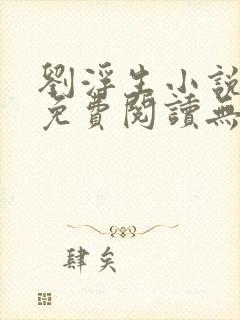 劉浮生小說
免費閱讀無
肆矣